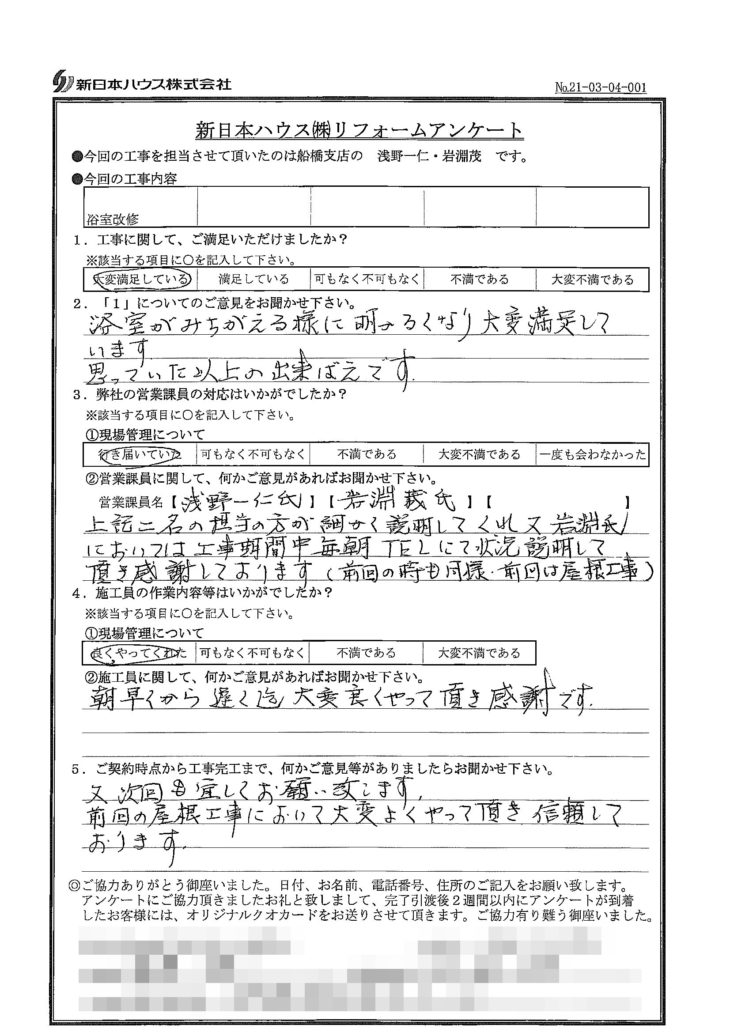 新日本ハウス株式会社
No.21-03-04-001
新日本ハウス㈱リフォームアンケート
●今回の工事を担当させて頂いたのは船橋支店の 浅野一仁・岩淵茂 です。
●今回の工事内容
浴室改修
1．工事に関して、ご満足いただけましたか？
※該当する項目に○を記入して下さい。
大変満足している 満足している 可もなく不可もなく 不満である 大変不満である
2．「1」についてのご意見をお聞かせ下さい。
浴室がみちがえる様に明るくなり大変満足して
います
思っていた以上の出来ばえです。
3．弊社の営業課員の対応はいかがでしたか？
※該当する項目に○を記入して下さい。
①現場管理について
行き届いていた 可もなく不可もなく 不満である 大変不満である 一度も会わなかった
②営業課員に関して、何かご意見があればお聞かせ下さい。
営業課員名【浅野一仁氏】【岩淵茂氏】【 】
上記二名の担当の方が細かく説明してくれ又岩淵氏
においては工事期間中毎朝TELにて状況説明して
頂き感謝しております（前回の時も同様・前回は屋根工事）
4．施工員の作業内容等はいかがでしたか？
※該当する項目に○を記入して下さい。
①現場管理について
良くやってくれた 可もなく不可もなく 不満である 大変不満である
②施工員に関して、何かご意見があればお聞かせ下さい。
朝早くから遅く迄大変良くやって頂き感謝です。
5．ご契約時点から工事完工まで、何かご意見等がありましたらお聞かせ下さい。
又次回も宜しくお願い致します。
前回の屋根工事において大変よくやって頂き信頼して
おります。
◎ご協力ありがとう御座いました。日付、お名前、電話番号、住所のご記入をお願い致します。
アンケートにご協力頂きましたお礼と致しまして、完了引渡後2週間以内にアンケートが到着
したお客様には、オリジナルクオカードをお送りさせて頂きます。ご協力有り難う御座いました。